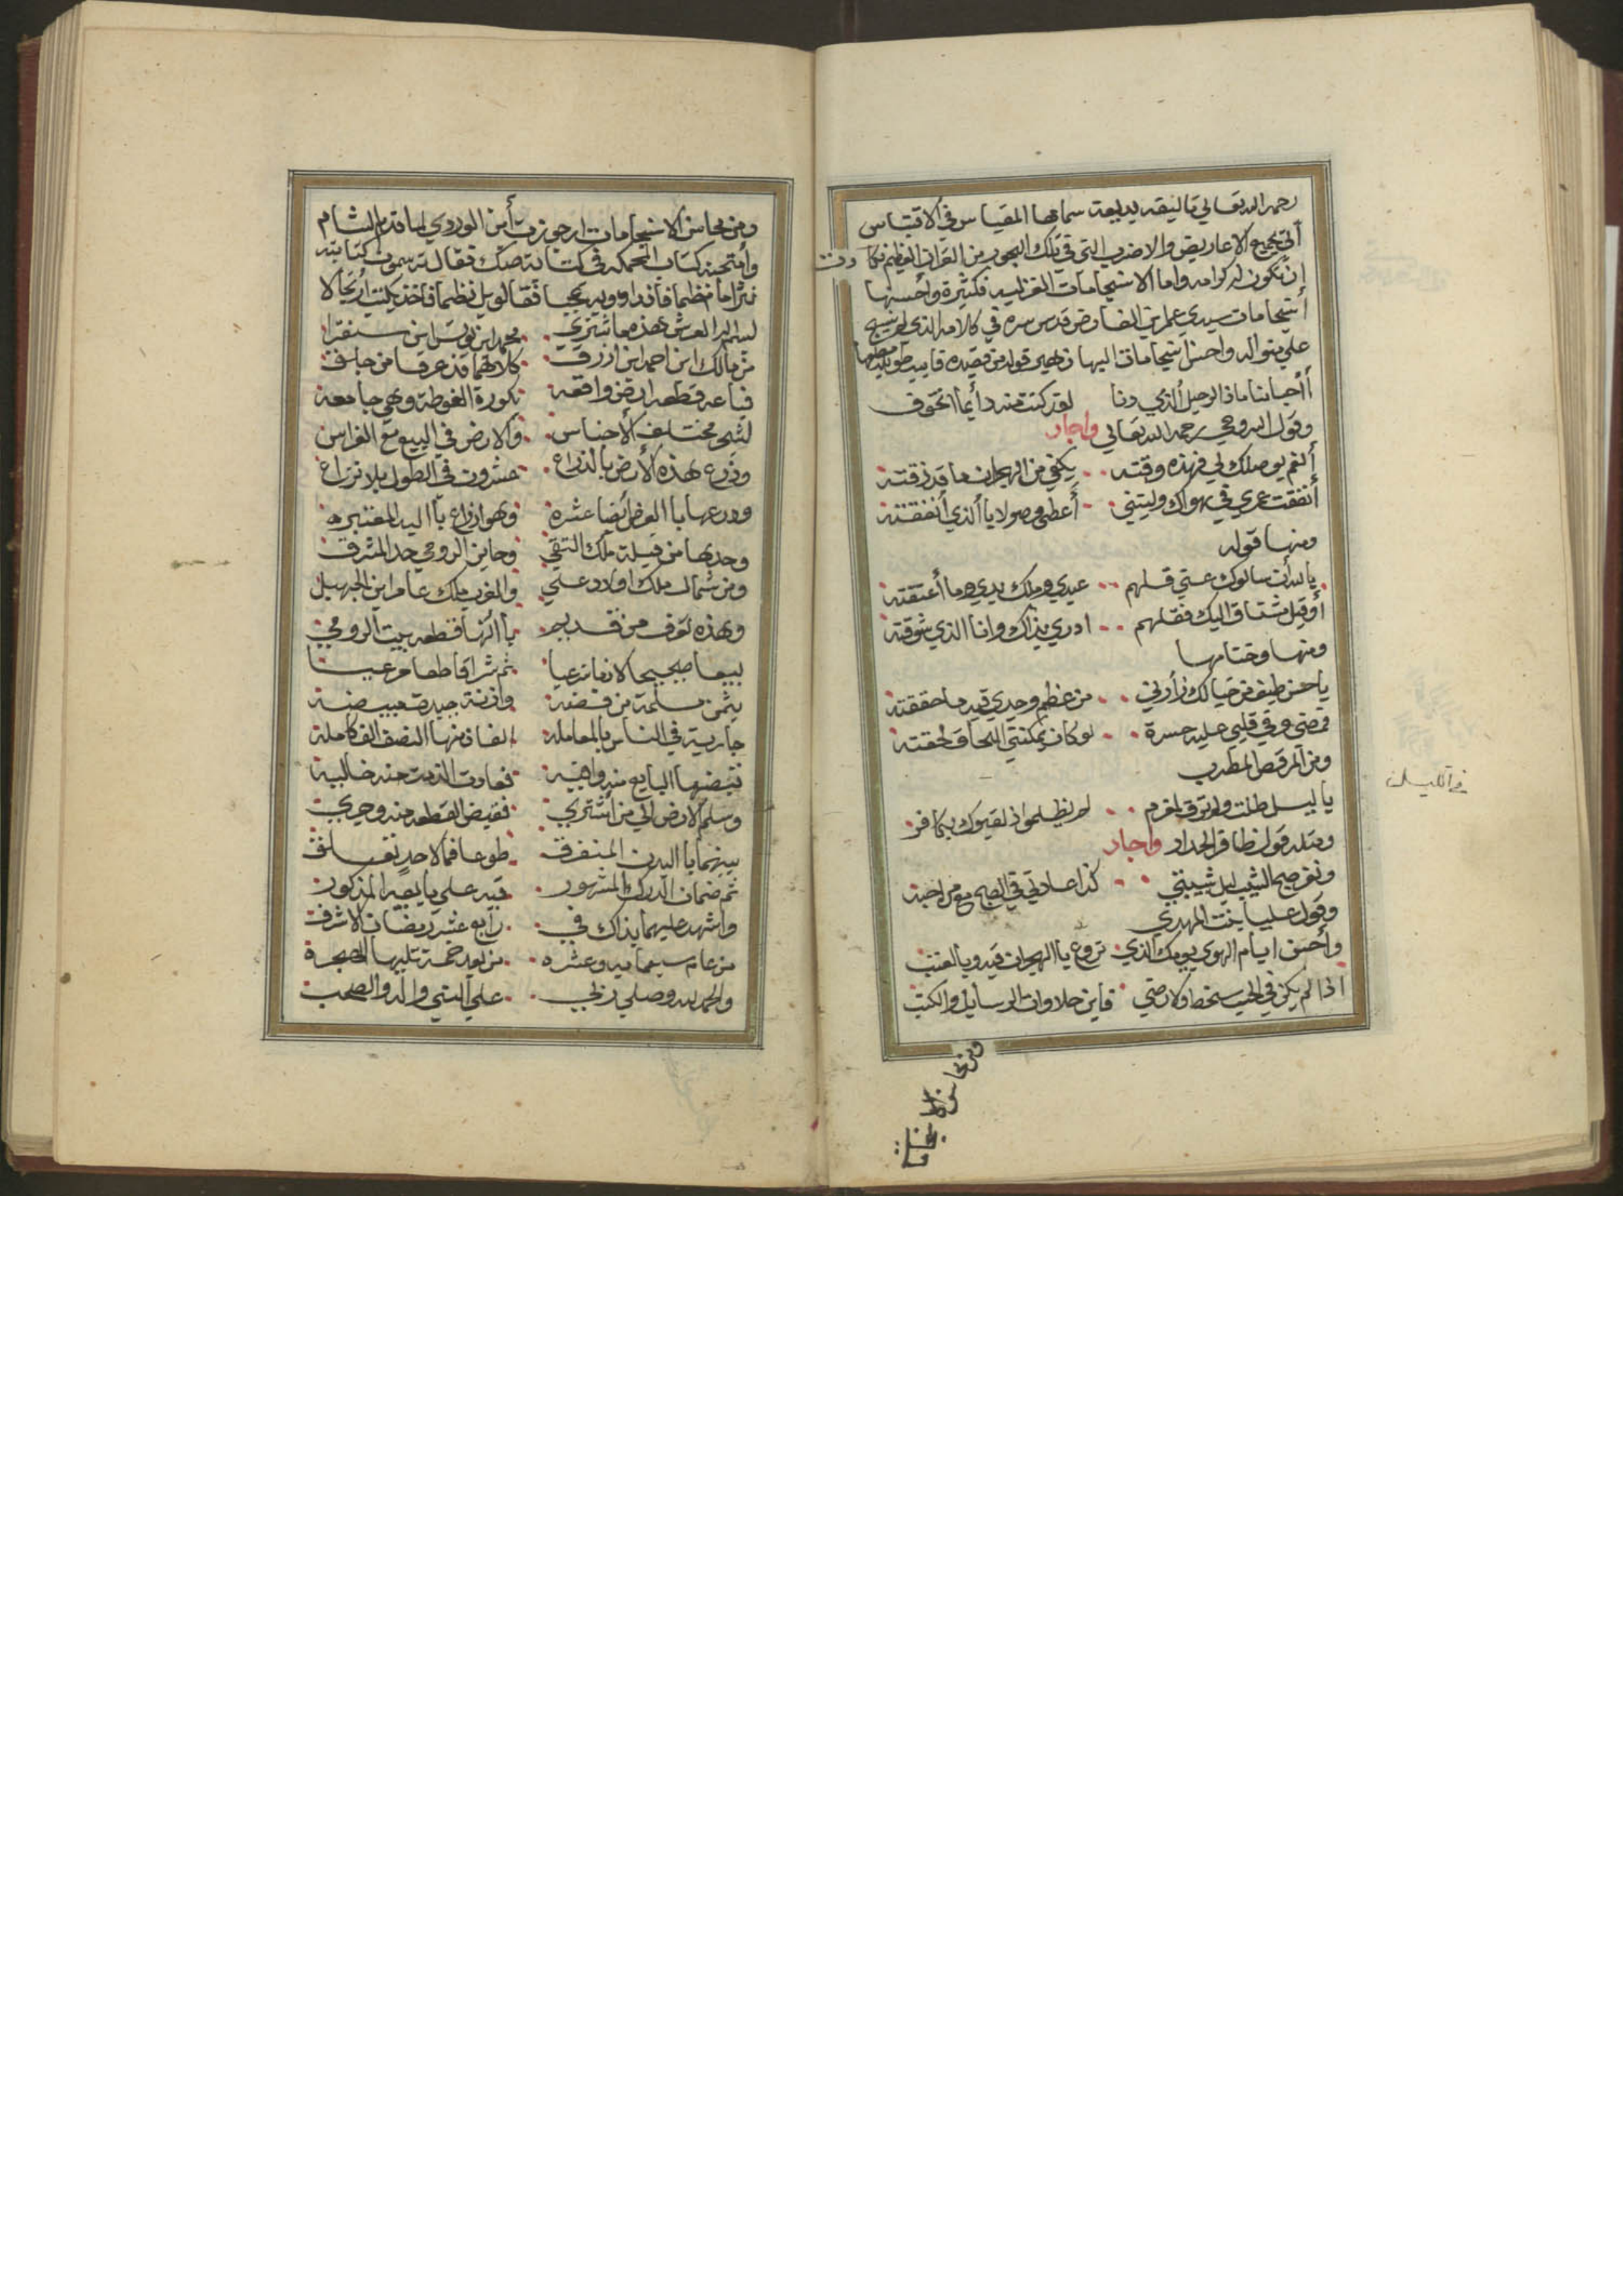 رحمه الله تعالي تاليفه لبديعة سماها المقياس في الاقتباس
أتي بجميع الاعاريض والاضرب التي في تلك البحور من القران العظيم كادت
إن تكون له كرامه واما الانسجامات الغزليه فكثيرة وأحسنها
أنسجامات سيدي عمر بن الفارض قدس سره في كلامه الذي لم ينسج
علي منواله واحسن انسجامات البها زهير قوله من قصيده قافيه طويله مطلعها
أأحبابنا ماذا الرحيل الذي دنا لقد كنت منه دأيما اتخوف
وقول السروجي رحمه الله تعالي واجاد
أنعم بوصلك لي فهذه وقته يكفي من الهجران ما قد ذقته
أنفقت عمري في هواك وليتني أعطي وصولا باالذي أنفقته
ومنها قوله
بالله أن سالوك عني قل لهم عبدي وملك يدي وما أعتقته
أو قيل مشتاق اليك فقل لهم ادري بذاك وانا الذي شوقته
ومنها وختامها
ياحسن طيف من خيالك زأرني من عظم وجدي فيه ما حققته
فمضي وفي قلبي عليه حسرة لو كان يمكنني اللحاق لحقته
ومن المرقص المطرب
يا ليل طلت ولم ترق لمغرم لم يظلموا اذ لقبوك بكافر
ومثله قول ظافر الحداد واجاد
ونفر صبح الشيب ليل شبيبتي كذا عادتي في الصبح مع من احبه
وقول عليا بنت المهدي
وأحسن ايام الهوي يومك الذي تروع باالهجران فيه وبالعتب
اذا لم يكن في الحب سخط ولا رضي فاين حلاوات الرسايل والكتب
ومن محاسن الانسجامات
في الليل
ومن محاسن الانسجامات ارجوزت أبن الوردي لما قدم الشام
وأمتحنه كتاب المحكمه في كتابة صك فقال ترسمون كتابته
نثرا ما نظما فقالو بل نظما فاخذ يكتب أرتجالا
بسم اله العرش هذه ما شتري محمد ابن يونس ابن سنقرا
من مالك ابن احمد ابن ازرق كلاهما قد عرفا من جلق
فباعه قطعه ارض واقعه بكورة الغوطة وهي جامعه
لشجر مختلف الأجناس والارض في البيع مع الغراس
وذرع هذه الأرض بالذراع عشرون في الطول بلا نزاع
وذرعها باالعرض أيضا عشره وهو اذراع باليد المعتبره
وحدها من قبلة ملك التقي وحاين الرومي حد المشرق
ومن شمال ملك اولاد علي والغرب ملك عامر ابن الجهبل
وهذه تعرف من قديم باانها قطعه بيت الرومي
بيعا صحيحا لازما شرعيا ثم شرا قاطعا مرعيا
بثمن مبلغه من فضه وازنة جيدة مبيضه
جارية في الناس بالمعامله الفان منها النصف الف كامله
قبضها البايع منه وافيه فعادت الذمت منه خاليه
وسلم الارض الي من أشتري فقبض القطعه منه وجري
بينهما باالبدن المتفرق طوعا فما لاحد تعلق
ثم ضمان الدرك المشهور فيه علي بايعه المذكور
واشهد عليهما بذاك في رابع عشر رمضان الاشرف
من عام سبعمايه وعشره من بعد خمسة تليها الهجرة
والحمد لله وصلي ربي علي النبي واله والصحب